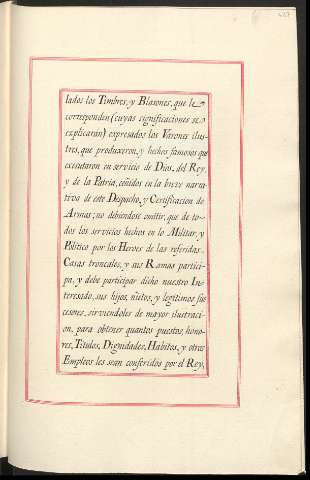 lados los Timbres, y Blasones, que le
corresponden (cuyas significaciones se
explicarán) expresados los Varones ilus-
tres, que produxeron, y hechos famosos que
executaron en servicio de Dios, del Rey,
y de la Patria, ceñidos en la breve narra-
tiva de este Despacho, y Certificacion de
Armas; no debiendose omitir, que de to-
dos los servicios hechos en lo Militar, y
Politico por los Heroes de las referidas
Casas troncales, y sus Ramas partici-
pa, y debe participar dicho nuestro In-
teresado, sus hijos, nietos, y legitimos suc-
cesores, sirviendoles de mayor ilustraci-
on, para obtener quantos puestos, hono-
res, Titulos, Dignidades, Habitos, y otros
Empleos les sean conferidos por el Rey,